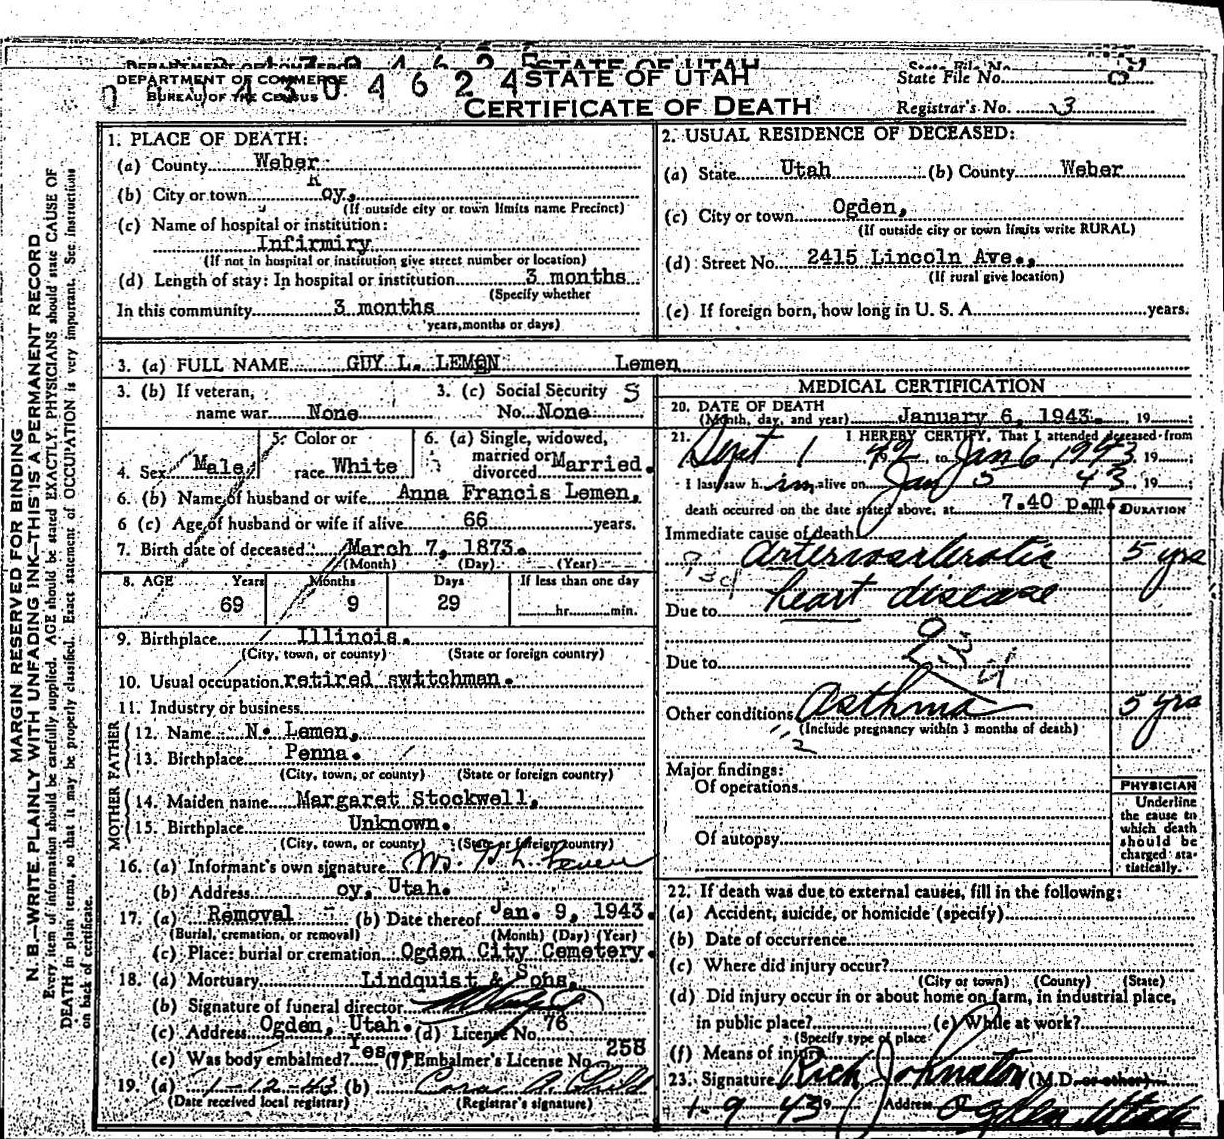 DEPARTMENT OF COMMERCE
BUREAU OF THE CENSUS
STATE OF UTAH
CERTIFICATE OF DEATH
State File No.
Registrar's No. 3
MARGIN RESERVED FOR BINDING
N. B.—WRITE PLAINLY WITH UNFADING INK—THIS IS A PERMANENT RECORD
Every item of information should be carefully supplied. AGE should be stated EXACTLY. PHYSICIANS should state CAUSE OF
DEATH in plain terms, so that it may be properly classified. Exact statement of OCCUPATION is very important. See instructions
on back of certificate.
1. PLACE OF DEATH:
(a) County Weber
(b) City or town Roy,
(If outside city or town limits name Precinct)
(c) Name of hospital or institution:
Infirmiry
(If not in hospital or institution give street number or location)
(d) Length of stay: In hospital or institution 3 months
(Specify whether
In this community 3 months
years, months or days)
2. USUAL RESIDENCE OF DECEASED:
(a) State Utah (b) County Weber
(c) City or town Ogden,
(If outside city or town limits write RURAL)
(d) Street No. 2415 Lincoln Ave.,
(If rural give location)
(e) If foreign born, how long in U. S. A. years.
3. (a) FULL NAME GUY L. LEMEN Lemen
3. (b) If veteran, 3. (c) Social Security S
name war None No. None
4. Sex Male 5. Color or race White 6. (a) Single, widowed, married or divorced Married.
6. (b) Name of husband or wife Anna Francis Lemen,
6 (c) Age of husband or wife if alive 66 years.
7. Birth date of deceased March 7, 1873.
(Month) (Day) (Year)
8. AGE Years Months Days If less than one day
69 9 29 hr. min.
9. Birthplace Illinois.
(City, town, or county) (State or foreign country)
10. Usual occupation retired switchman.
11. Industry or business
FATHER
12. Name N. Lemen,
13. Birthplace Penna.
(City, town, or county) (State or foreign country)
MOTHER
14. Maiden name Margaret Stockwell,
15. Birthplace Unknown.
(City, town, or county) (State or foreign country)
16. (a) Informant's own signature
(b) Address oy, Utah.
17. (a) Removal (b) Date thereof Jan. 9, 1943.
(Burial, cremation, or removal) (Month) (Day) (Year)
(c) Place: burial or cremation Ogden City Cemetery.
18. (a) Mortuary Lindquist & Sons,
(b) Signature of funeral director
(c) Address Ogden, Utah. (d) License No. 76
(e) Was body embalmed? Yes (f) Embalmer's License No. 258
19. (a) 1-12-43 (b) Cora A. Child
(Date received local registrar) (Registrar's signature)
MEDICAL CERTIFICATION
20. DATE OF DEATH
(Month, day, and year) January 6, 1943. 19
21. I HEREBY CERTIFY, That I attended deceased from
Sept 1 42 to Jan 6 1943 19
I last saw him alive on Jan 5 43 19
death occurred on the date stated above, at 7.40 p.m. DURATION
Immediate cause of death
arteriosclerotic 5 yrs
Due to heart disease
Due to
Other conditions Asthma 5 yrs
(Include pregnancy within 3 months of death)
Major findings:
Of operations
Of autopsy
PHYSICIAN
Underline
the cause to
which death
should be
charged sta-
tistically.
22. If death was due to external causes, fill in the following:
(a) Accident, suicide, or homicide (specify)
(b) Date of occurrence
(c) Where did injury occur?
(City or town) (County) (State)
(d) Did injury occur in or about home on farm, in industrial place,
in public place? (e) While at work?
(Specify type of place)
(f) Means of injury
23. Signature Rich Johnston (M.D. or other)
1-9-43 Address Ogden Utah